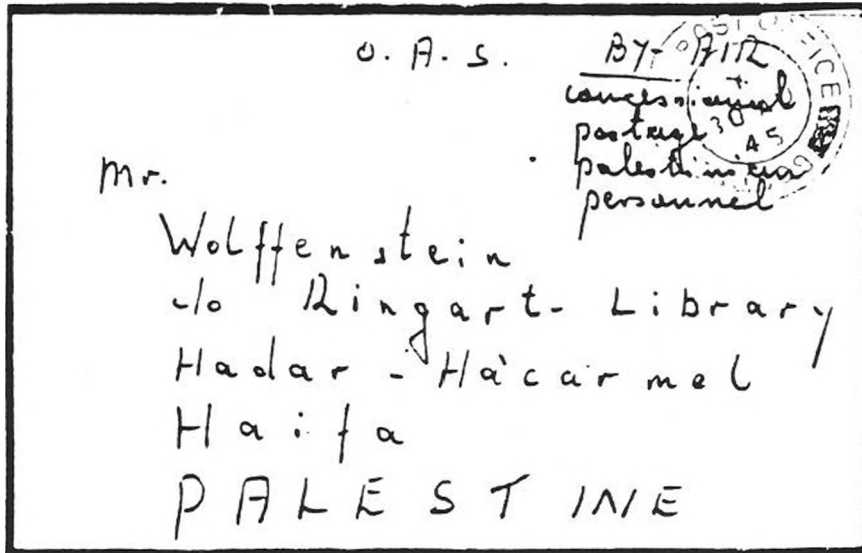 O. A. S.
BY-AIR
concessional
postage
palestinian
personnel
POST OFFICE
30
45
Mr.
Wolffenstein
c/o Ringart-Library
Hadar - Hàcarmel
Haifa
PALESTINE